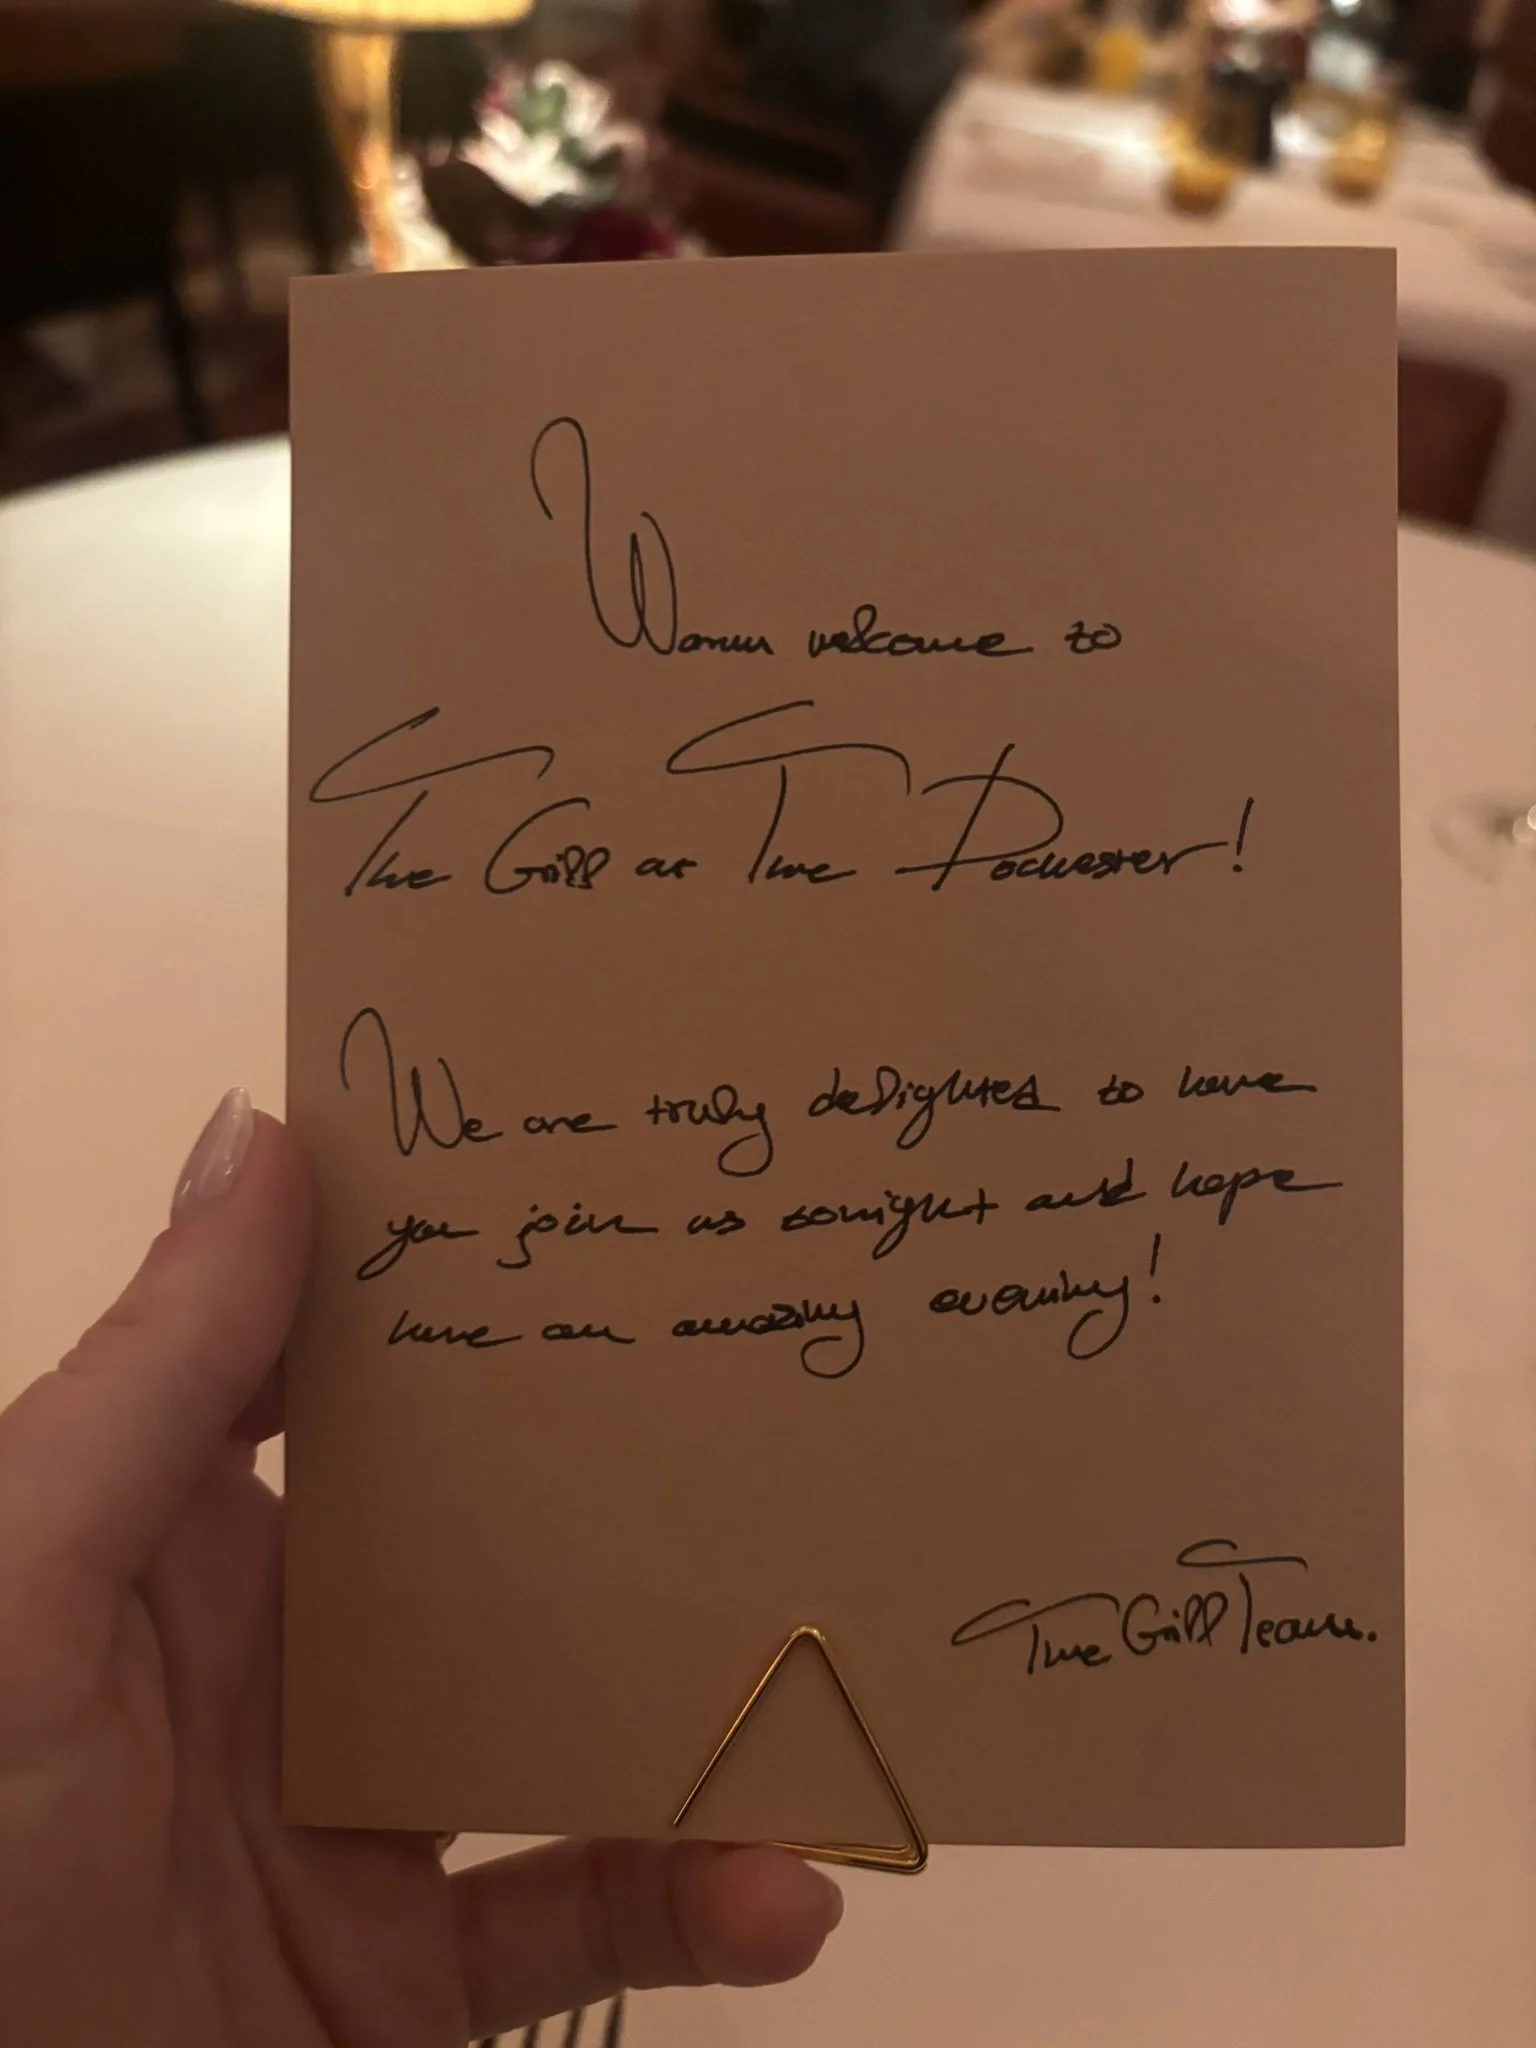 Warm welcome to
The Grill at The Dorchester!
We are truly delighted to have
you join us tonight and hope
have an amazing evening!
The Grill Team.